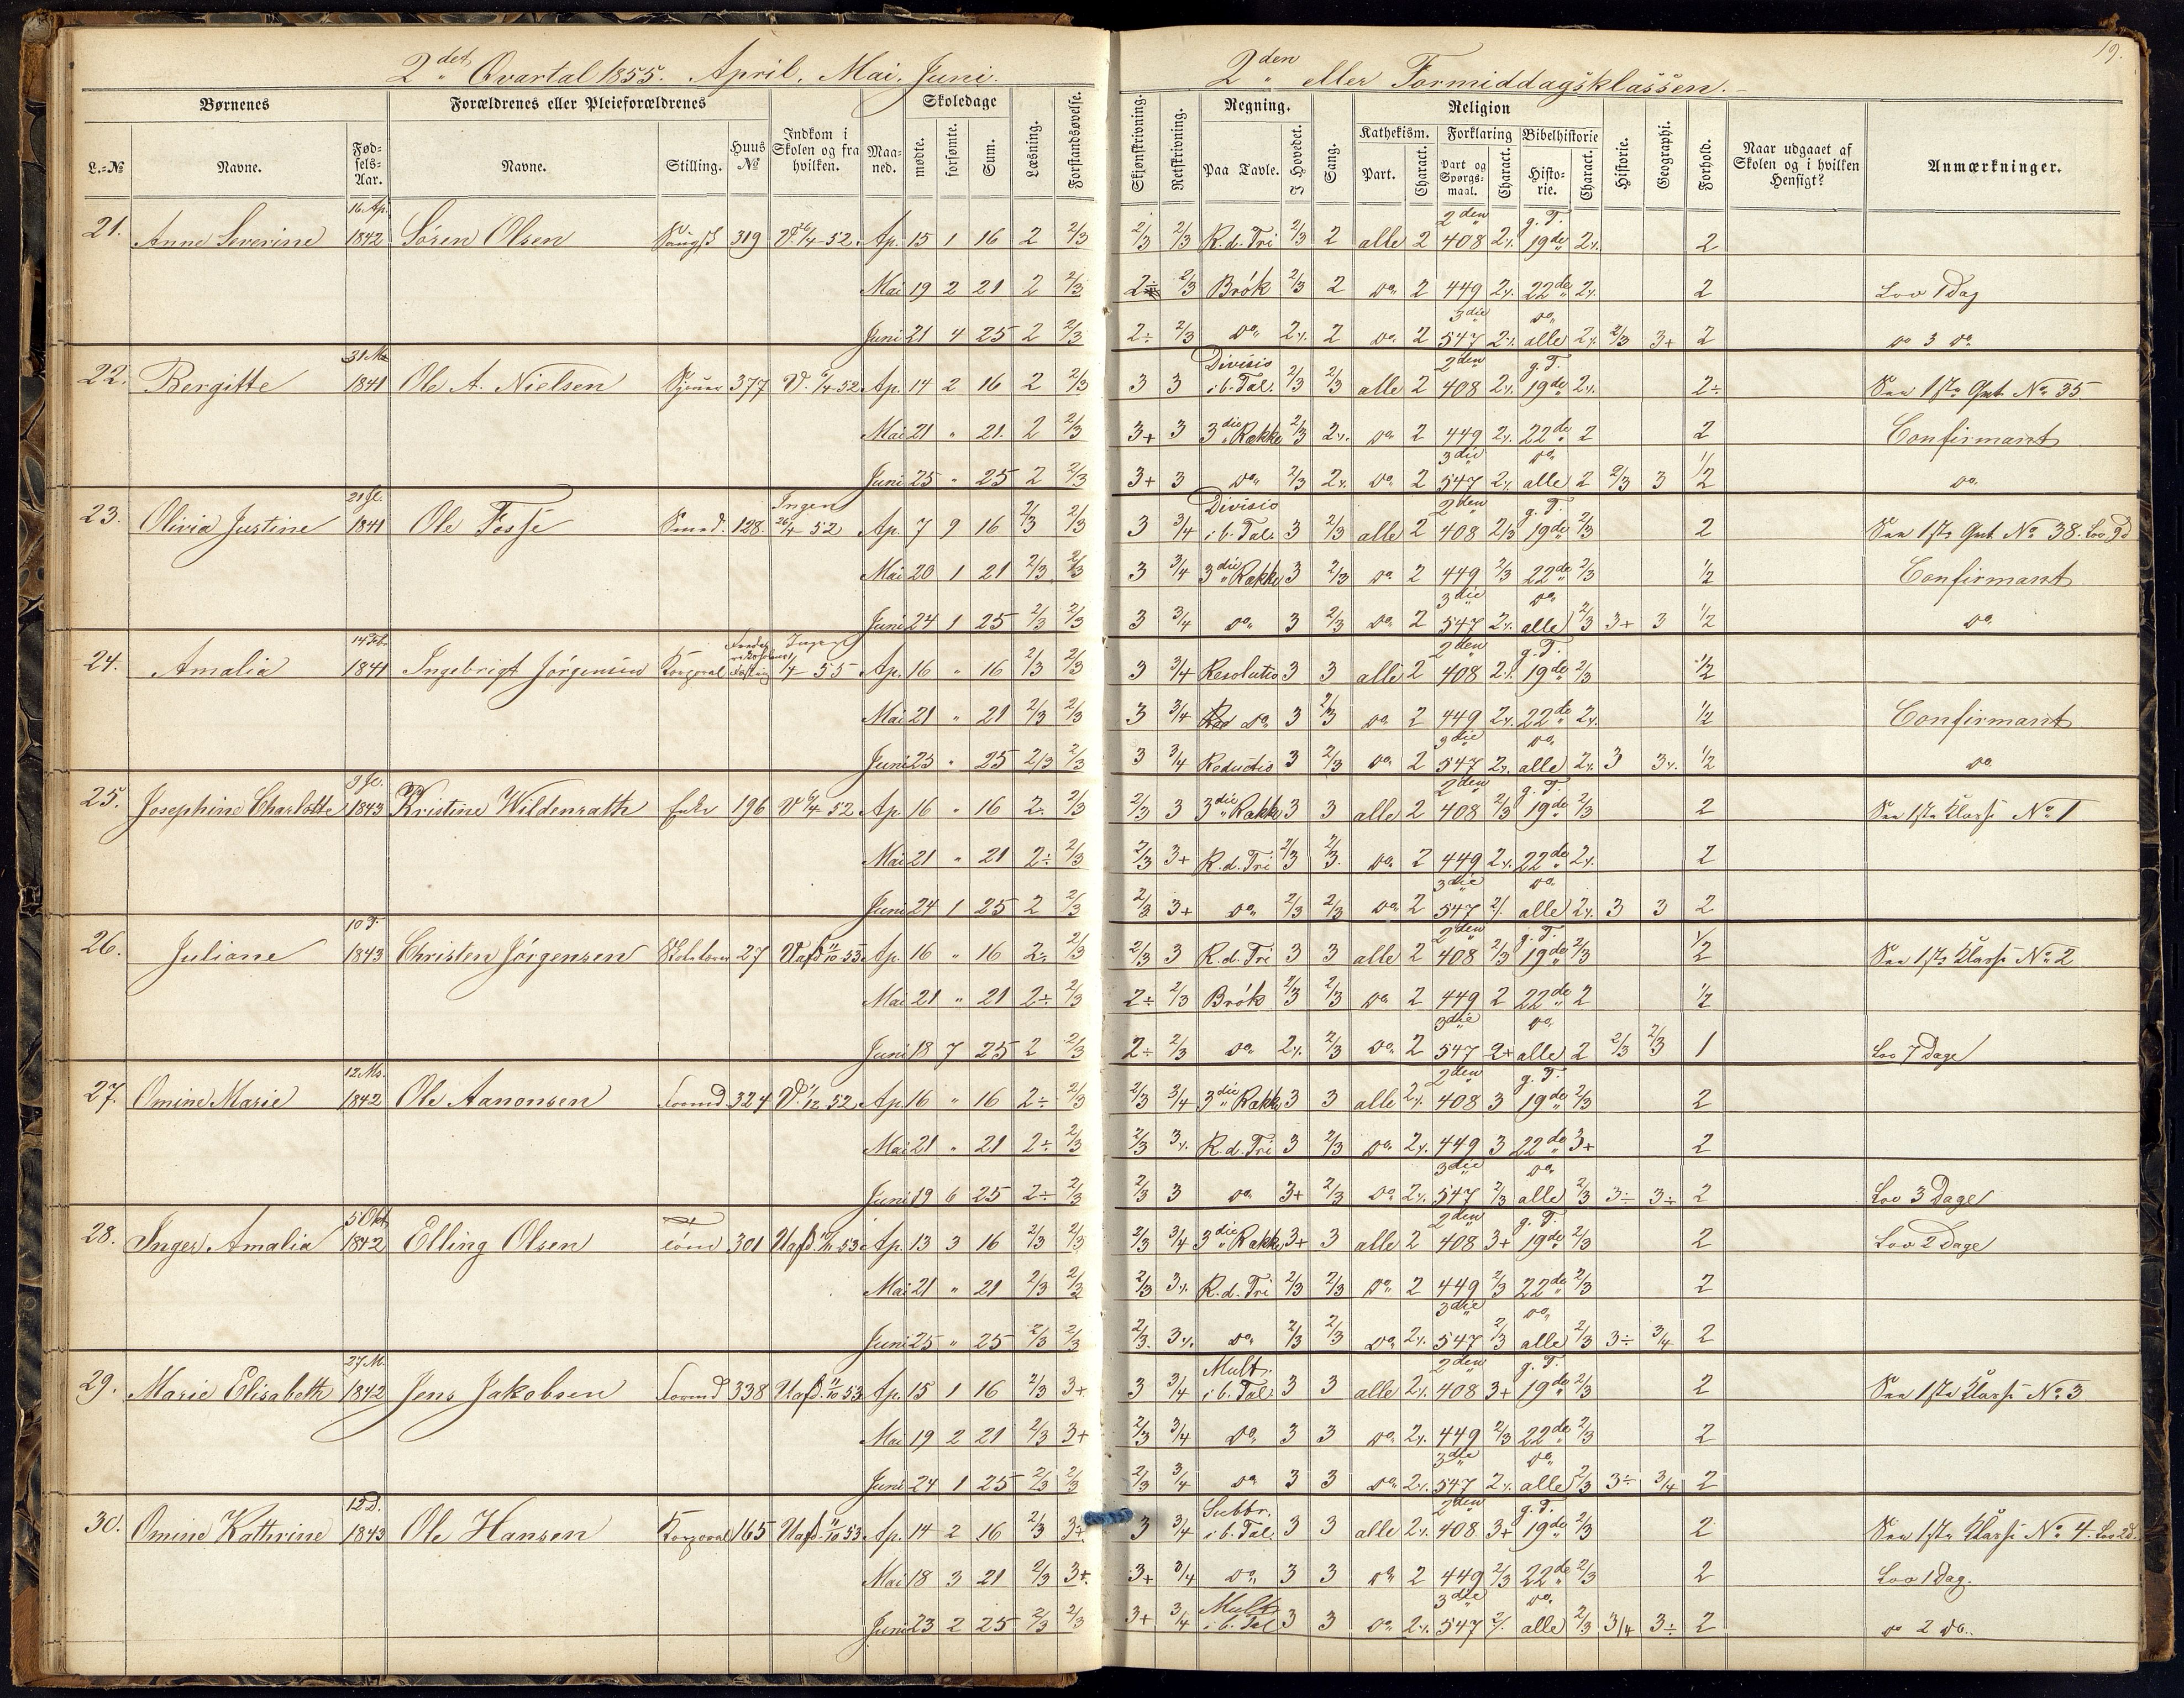 2det Qvartal 1855. April. Mai. Juni.
Børnenes
Forældrenes eller Pleieforældrenes
Indkom i Skolen og fra hvilken.
Skoledage
L.-No
Navne.
Fødsels-Aar.
Navne.
Stilling.
Huus No
Maaned.
mødte.
forsømte.
Sum.
Læsning.
Forstandsøvelse.
21. Anne Severine 16 Ap. 1842 Sören Olsen 319 V. 6/4-52. Ap. 15 1 16 2 2/3
Mai 19 2 21 2 2/3
Juni 21 4 25 2 2/3
22. Bergitte 1841 Ole A. Nielsen 377 V. 6/4-52 Ap. 14 2 16 2 2/3
Mai 21 " 21. 2 2/3
Juni 25 " 25 2 2/3
23. Olivia Justine 1841 Ole Fosse Smed. 128. Ingen 26/4 52 Ap. 7 9 16 2/3 2/3
Mai 20 1 21 2/3 2/3
Juni 24 1 25 2/3 2/3
24. Amalia 14 Feb. 1841 Ingebrigt Jørgensen Ingen 55 Ap. 16 " 16 2/3 2/3
Mai 21 " 21 2/3 2/3
Juni 25 " 25 2/3 2/3
25. Josephine Charlotte 1843 Kristine Wildenrath Enke 196 V 6/4 52 Ap. 16 " 16 2÷ 2/3
Mai 21 " 21 2÷ 2/3
Juni 24 1 25 2 2/3
26. Juliane 1843 Christen Jörgensen 27 Uafd 11/10 53 Ap. 16 " 16 2÷ 2/3
Mai 21 " 21 2÷ 2/3
Juni 18 7 25 2 2/3
27. Omine Marie 1842 Ole Aanonsen 324 52 Ap. 16 " 16 2÷ 2/3
Mai 21 " 21 2÷ 2/3
Juni 19 6 25 2÷ 2/3
28. Inger Amalia 5 Okt 1842 Elling Olsen 301 Uafd. 53 Ap. 13 3 16 2/3 2/3
Mai 21 " 21 2/3 2/3
Juni 25 " 25 2/3 2/3
29. Marie Elisabeth 27 M. 1842 Jens Jakobsen 338 Uafd. 11/10 53 Ap. 15 1 16 2/3 3+
Mai 19 2 21 2/3 3+
Juni 24 1 25 2/3 2/3
30. Omine Kathrine 12 D. 1843 Ole Hansen 165 Uafd. 11/10 53 Ap. 14 2 16 2/3 3+
Mai 18 3 21 2/3 3+
Juni 23 2 25 2/3 2/3
19.
2den eller Formiddagsklassen.
Skjønskrivning.
Retskrivning.
Regning.
Paa Tavle.
I Hovedet.
Sang.
Religion
Kathekism.
Forklaring
Bibelhistorie
Part.
Charact.
Part og Spørgsmaal.
Charact.
Historie.
Charact.
Historie.
Geographi.
Forhold.
Naar udgaaet af Skolen og i hvilken Hensigt?
Anmærkninger.
2/3 2/3 R. d. Tri 2/3 2 alle 2 2den 408 2÷ g. T. 19de 2÷ 2
2÷ 2/3 Brök 2/3 2 do 2 449 2÷ 22de 2÷ 2 Lov 1 Dag
2÷ 2/3 do 2÷ 2 do 2 3die 547 2÷ do alle 2÷ 2/3 3+ 2 do 3 do
3 3 Divisio i b. Tal. 2/3 2/3 alle 2 2den 408 2÷ g. T. 19de 2÷ 2÷ No 35
3+ 3 3die Række 2/3 2÷ do 2 449 2÷ 22de 2 2 Confirmant
3+ 3 do 2/3 2÷ do 2 3die 547 2÷ do alle 2 2/3 3 1/2 do
3 3/4 Divisio i b. Tal. 3 2/3 alle 2 2den 408 2/3 g. T. 19de 2/3 2 No 38.
3 3/4 3die Række 3 2/3 do 2 449 2/3 22de 2/3 1/2 Confirmant
3 3/4 do 3 2/3 do 2 3die 547 2÷ do alle 2/3 3+ 3 1/2 do
3 3/4 Resolutio 3 3 alle 2 2den 408 2÷ g. T. 19de 2/3 1/2
3 3/4 do 3 2/3 do 2 449 2÷ 22de 2÷ 1/2 Confirmant
3 3/4 Reductio 3 2/3 do 2 3die 547 2÷ do alle 2÷ 3 3÷ 1/2 do
2/3 3 3die Række 3 3 alle 2 2den 408 2/3 g. T. 19de 2/3 2 1ste Klasse No 1
2/3 3+ R. d. Tri 2/3 2/3 do 2 449 2÷ 22de 2÷ 2
2/3 3+ do 2/3 2/3 do 2 3die 547 2÷ do alle 2÷ 3 3 2
2/3 3 R. d. Tri 3 3 alle 2 2den 408 2/3 g. T. 19de 2/3 1/2 1ste Klasse No 2
2÷ 2/3 Brök 2/3 2/3 do 2 449 2 22de 2 1/2
2÷ 2/3 do 2÷ 2/3 do 2 3die 547 2+ do alle 2 2/3 2/3 1 Lov 7 Dage
2/3 3/4 3die Række 3 3 alle 2÷ 2den 408 3 g. T. 19de 2/3 2
2/3 3÷ R. d. Tri 3 2/3 do 2÷ 449 3 22de 3+ 2
2/3 3 do 3+ 2/3 do 2÷ 3die 547 2/3 do alle 2/3 3÷ 3÷ 2 Lov 3 Dage
2/3 3/4 3die Række 3+ 3 alle 2 2den 408 3+ g. T. 19de 2/3 2 Lov 2 Dage
2/3 3÷ R. d. Tri 2/3 2/3 do 2 449 2/3 22de 2/3 2
2/3 3÷ do 2/3 2/3 do 2÷ 3die 547 2/3 do alle 2/3 3÷ 3/4 2
3 3/4 Mult. i b. Tal. 3 3 alle 2÷ 2den 408 3+ g. T. 19de 2/3 2 1ste Klasse No 3
2/3 3/4 do 3 3 do 2÷ 449 2/3 22de 2/3 2
2/3 3/4 do 3 3 do 2÷ 3die 547 2÷ do alle 2/3 3÷ 3/4 2
3 3/4 Subtr. i b. Tal. 3 3 alle 2÷ 2den 408 3+ g. T. 19de 2/3 2 1ste Klasse No 4.
3+ 3/4 do 3 3 do 2 449 2/3 22de 2/3 2 Lov 1 Dag.
3+ 3/4 Mult. i b. Tal 3 3 do 2÷ 3die 547 2÷ do alle 2/3 3/4 3÷ 2 do 2 do.